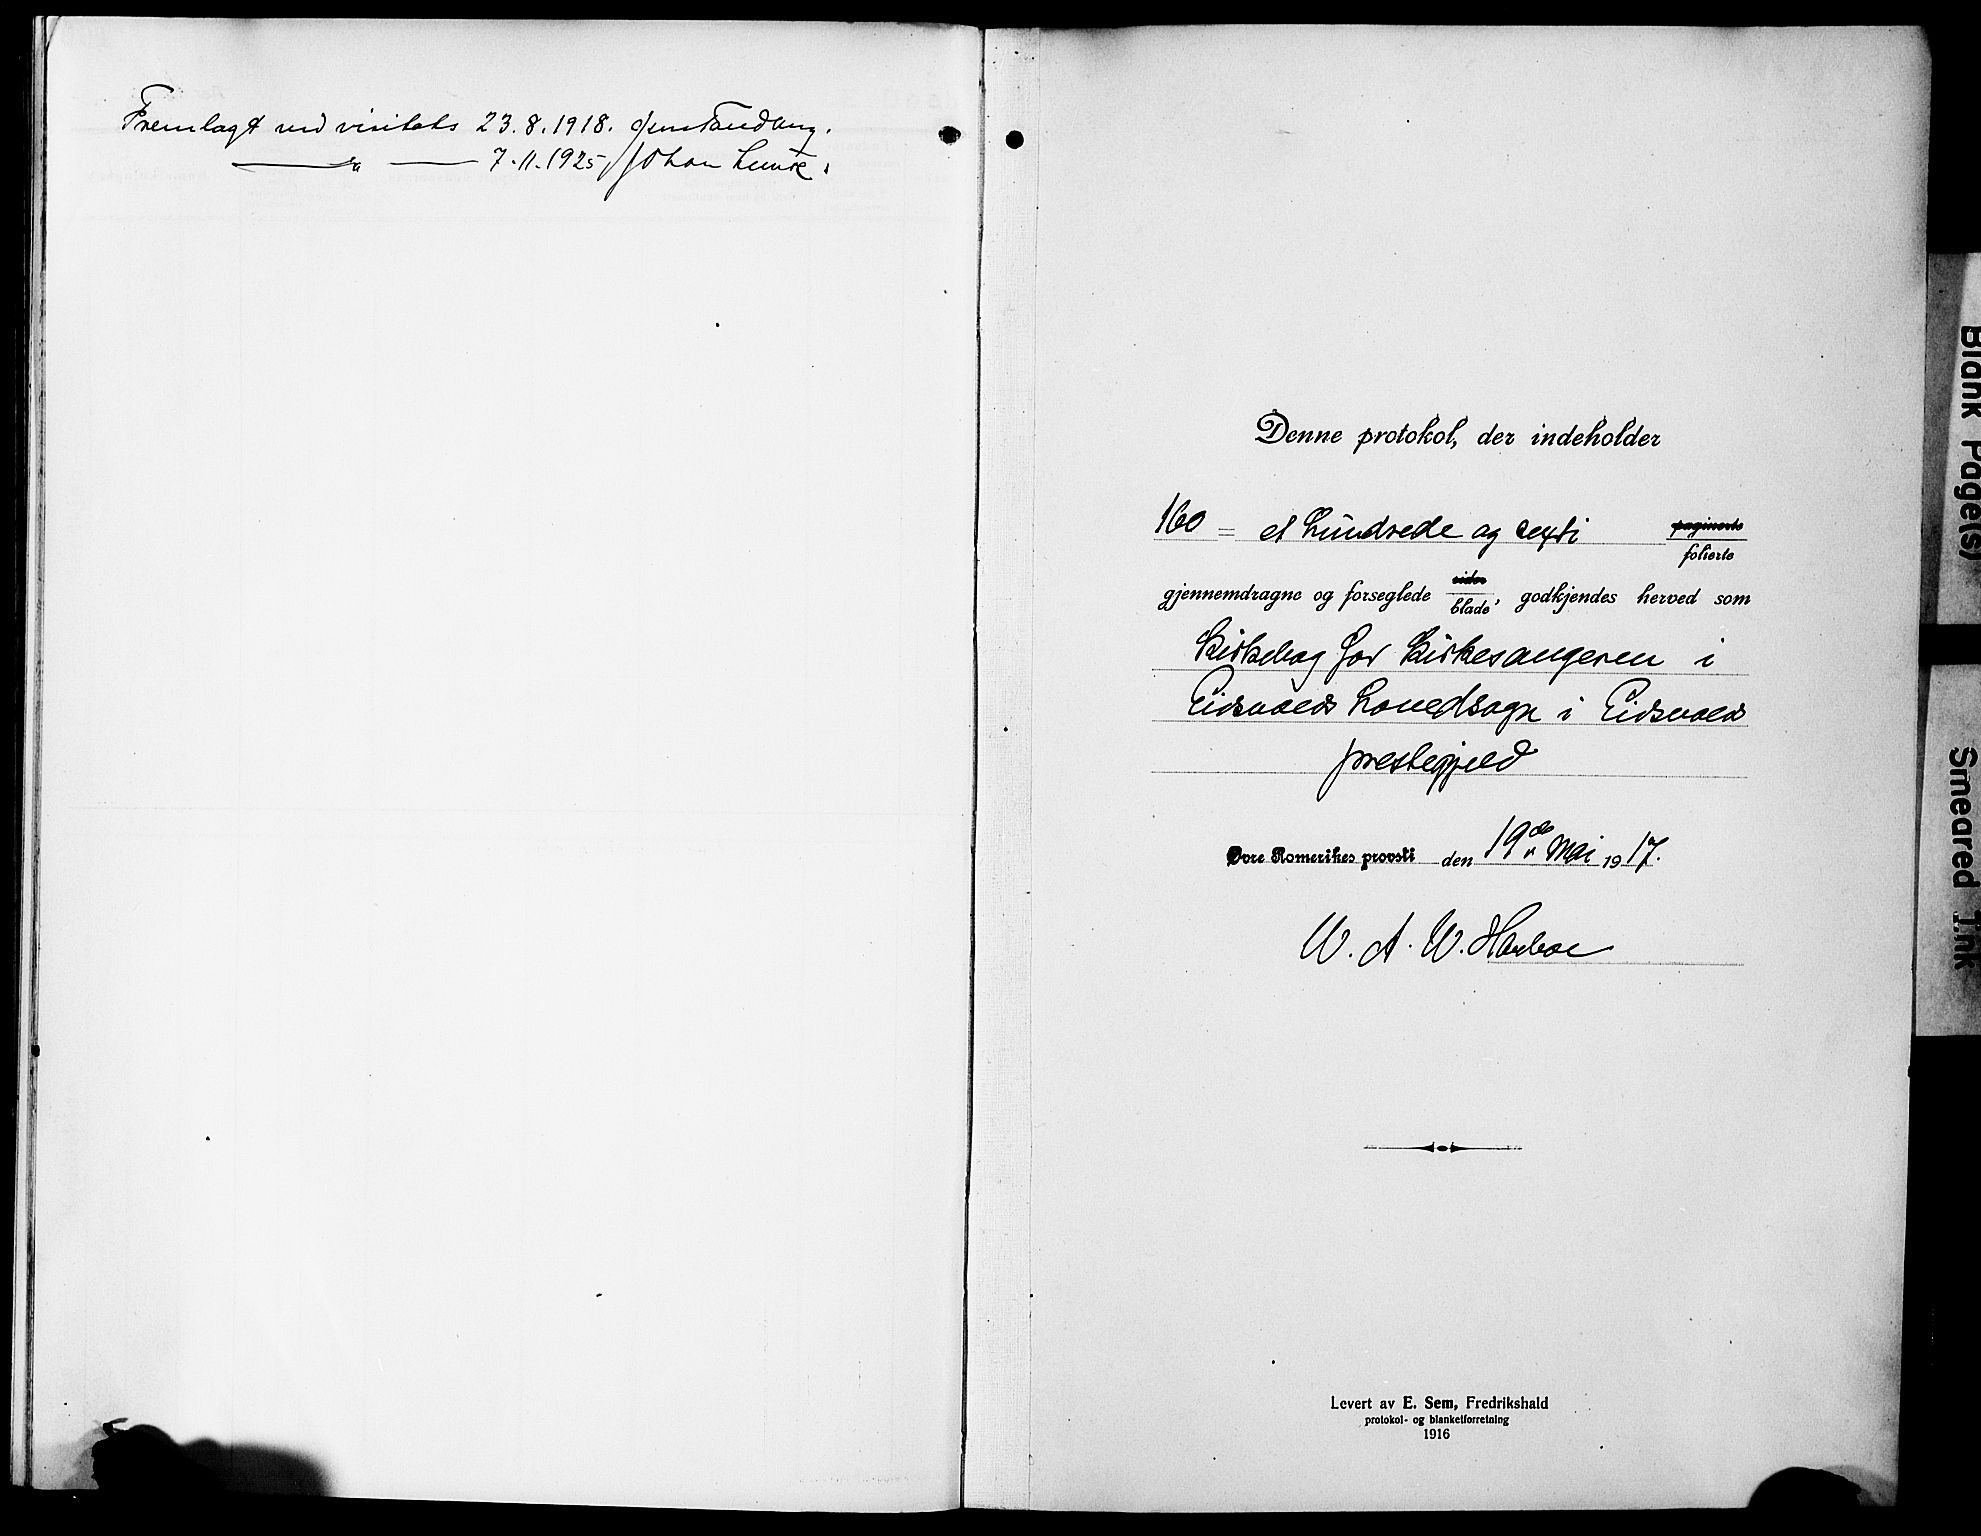 Fremlagt ved visitats 23.8.1918. Jens Tandberg.
— " — 7-11-1925, Johan Lunde.
Denne protokol, der indeholder
160 = et hundrede og sexti paginerte
folierte
gjennemdragne og forseglede sider
blade, godkjendes herved som
Kirkebog for Kirkesangeren i
Eidsvolds hovedsogn i Eidsvolds
prestegjeld
Øvre Romerikes provsti den 19de Mai 1917.
W. A. W. Harboe
Levert av E. Sem, Fredrikshald
protokol- og blanketforretning
1916
Blank Page(s)
Smeared Ink